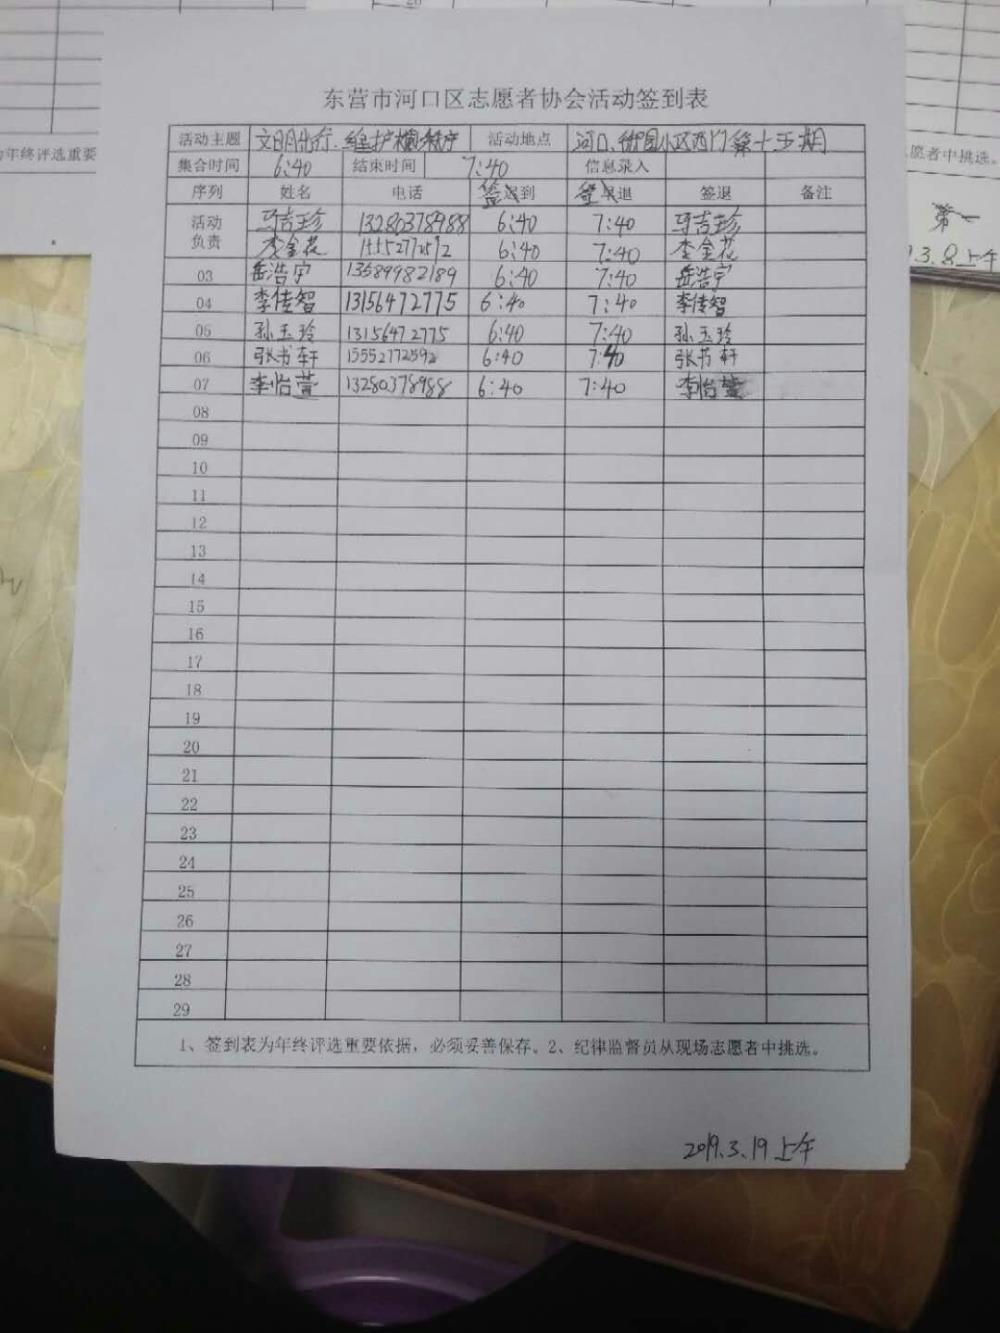 东营市河口区志愿者协会活动签到表
活动主题 文明出行.维护 秩序 活动地点 河口 小区西门第十五期
集合时间 6:40 结束时间 7:40 信息录入
序列 姓名 电话 签到 签退 签退 备注
活动负责 马吉珍 13280378988 6:40 7:40 马吉珍
李金花 15552772592 6:40 7:40 李金花
03 岳浩宇 13589982189 6:40 7:40 岳浩宇
04 李传智 13156472775 6:40 7:40 李传智
05 孙玉玲 13156472775 6:40 7:40 孙玉玲
06 张书轩 15552772592 6:40 7:40 张书轩
07 李怡萱 13280378988 6:40 7:40 李怡萱
08
09
10
11
12
13
14
15
16
17
18
19
20
21
22
23
24
25
26
27
28
29
1、签到表为年终评选重要依据，必须妥善保存。2、纪律监督员从现场志愿者中挑选。
2019.3.19上午
为年终评选重要
愿者中挑选。
第一
.3.8上午